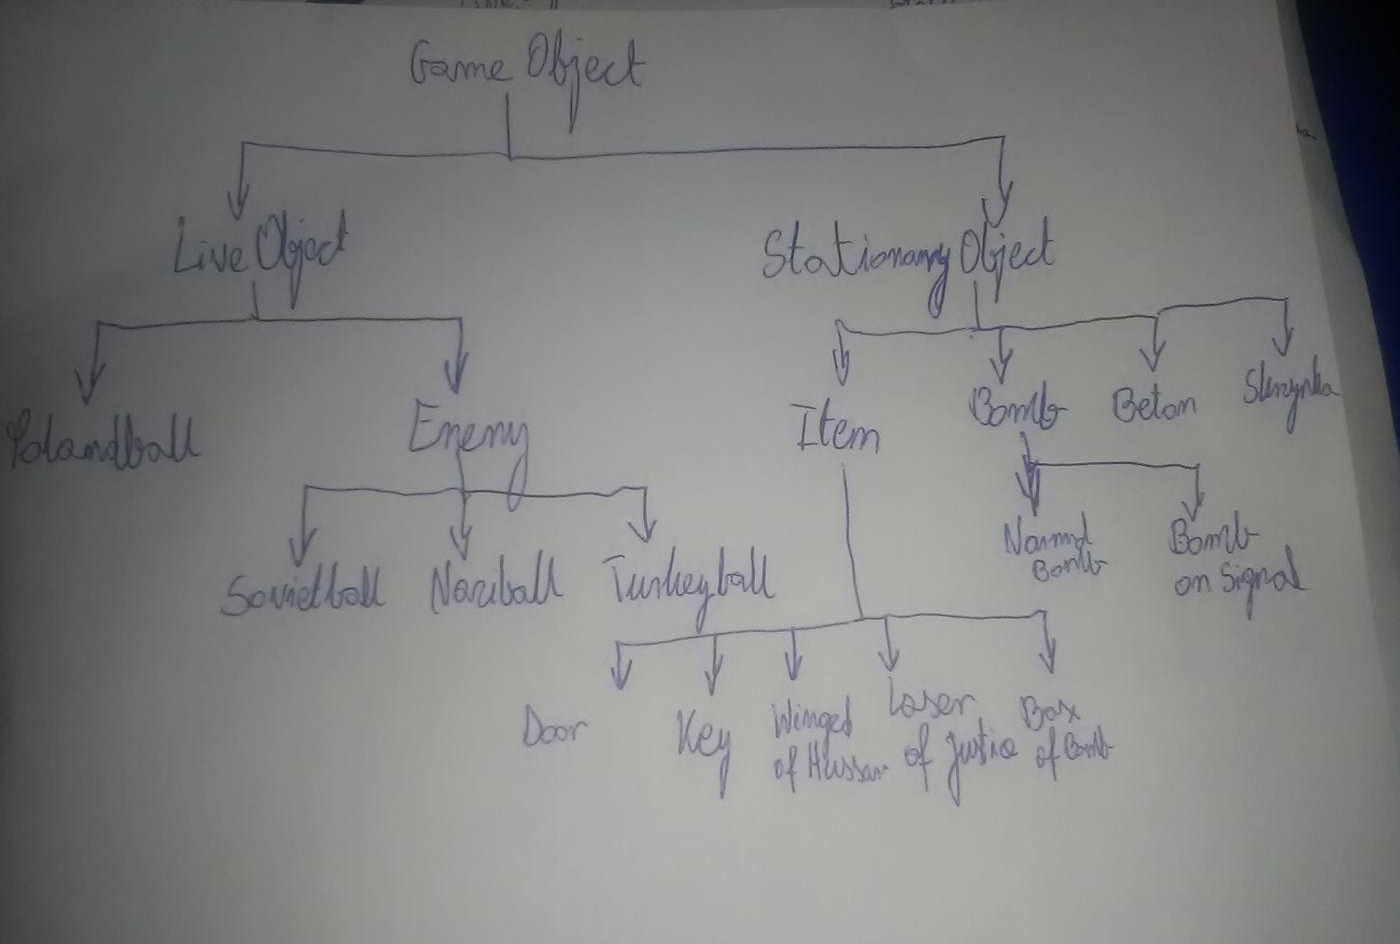 Game Object
Live Object
Stationary Object
Polandball
Enemy
Item
Bomb
Beton
Skrzynka
Sovietball
Naziball
Turkeyball
Normal
Bomb
Bomb
on Signal
Door
Key
Winged
of Hussar
Laser
of Justice
Box
of Bomb